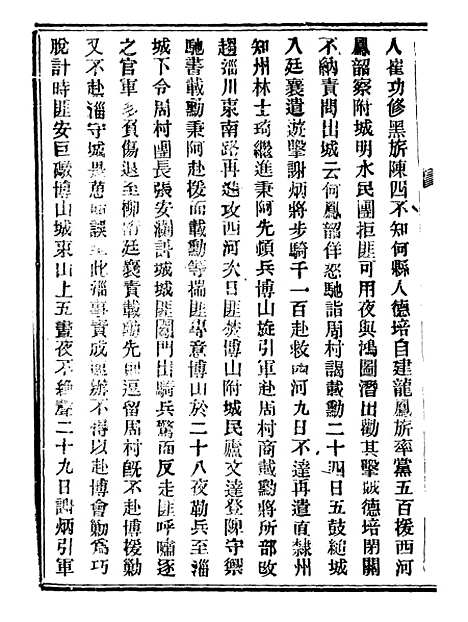 人崔功修黑旂陳四不知何縣人德培自建龍鳳旂率黨五百援西河
鳳韶察附城明水民團拒匪可用夜與鴻圖潛出勸其擊賊德培閉關
不納責問出城云何鳳韶佯忍馳詣周村謁載勳二十四日五鼓縋城
入廷襄遣遊擊謝炳將步騎千一百赴救西河九日不達再遣直隸州
知州林士琦繼進秉阿先頓兵博山旋引軍赴周村商載勳將所部改
趨淄川東南路再進攻西河次日匪焚博山附城民廬文達登陴守禦
馳書載勳秉阿赴援而載勳等揣匪專意博山於二十八夜勒兵至淄
城下令周村團長張安瀾詐城城匪闢門出騎兵驚而反走匪呼嘯逐
之官軍多負傷退至柳 廷襄責載勳先 逗留周村旣不赴博援勦
又不赴淄守城畏葸 誤至此淄事責成 辦不得以赴博會勦爲巧
脫計時匪安巨礮博山城東山上五晝夜不絶聲二十九日謝炳引軍